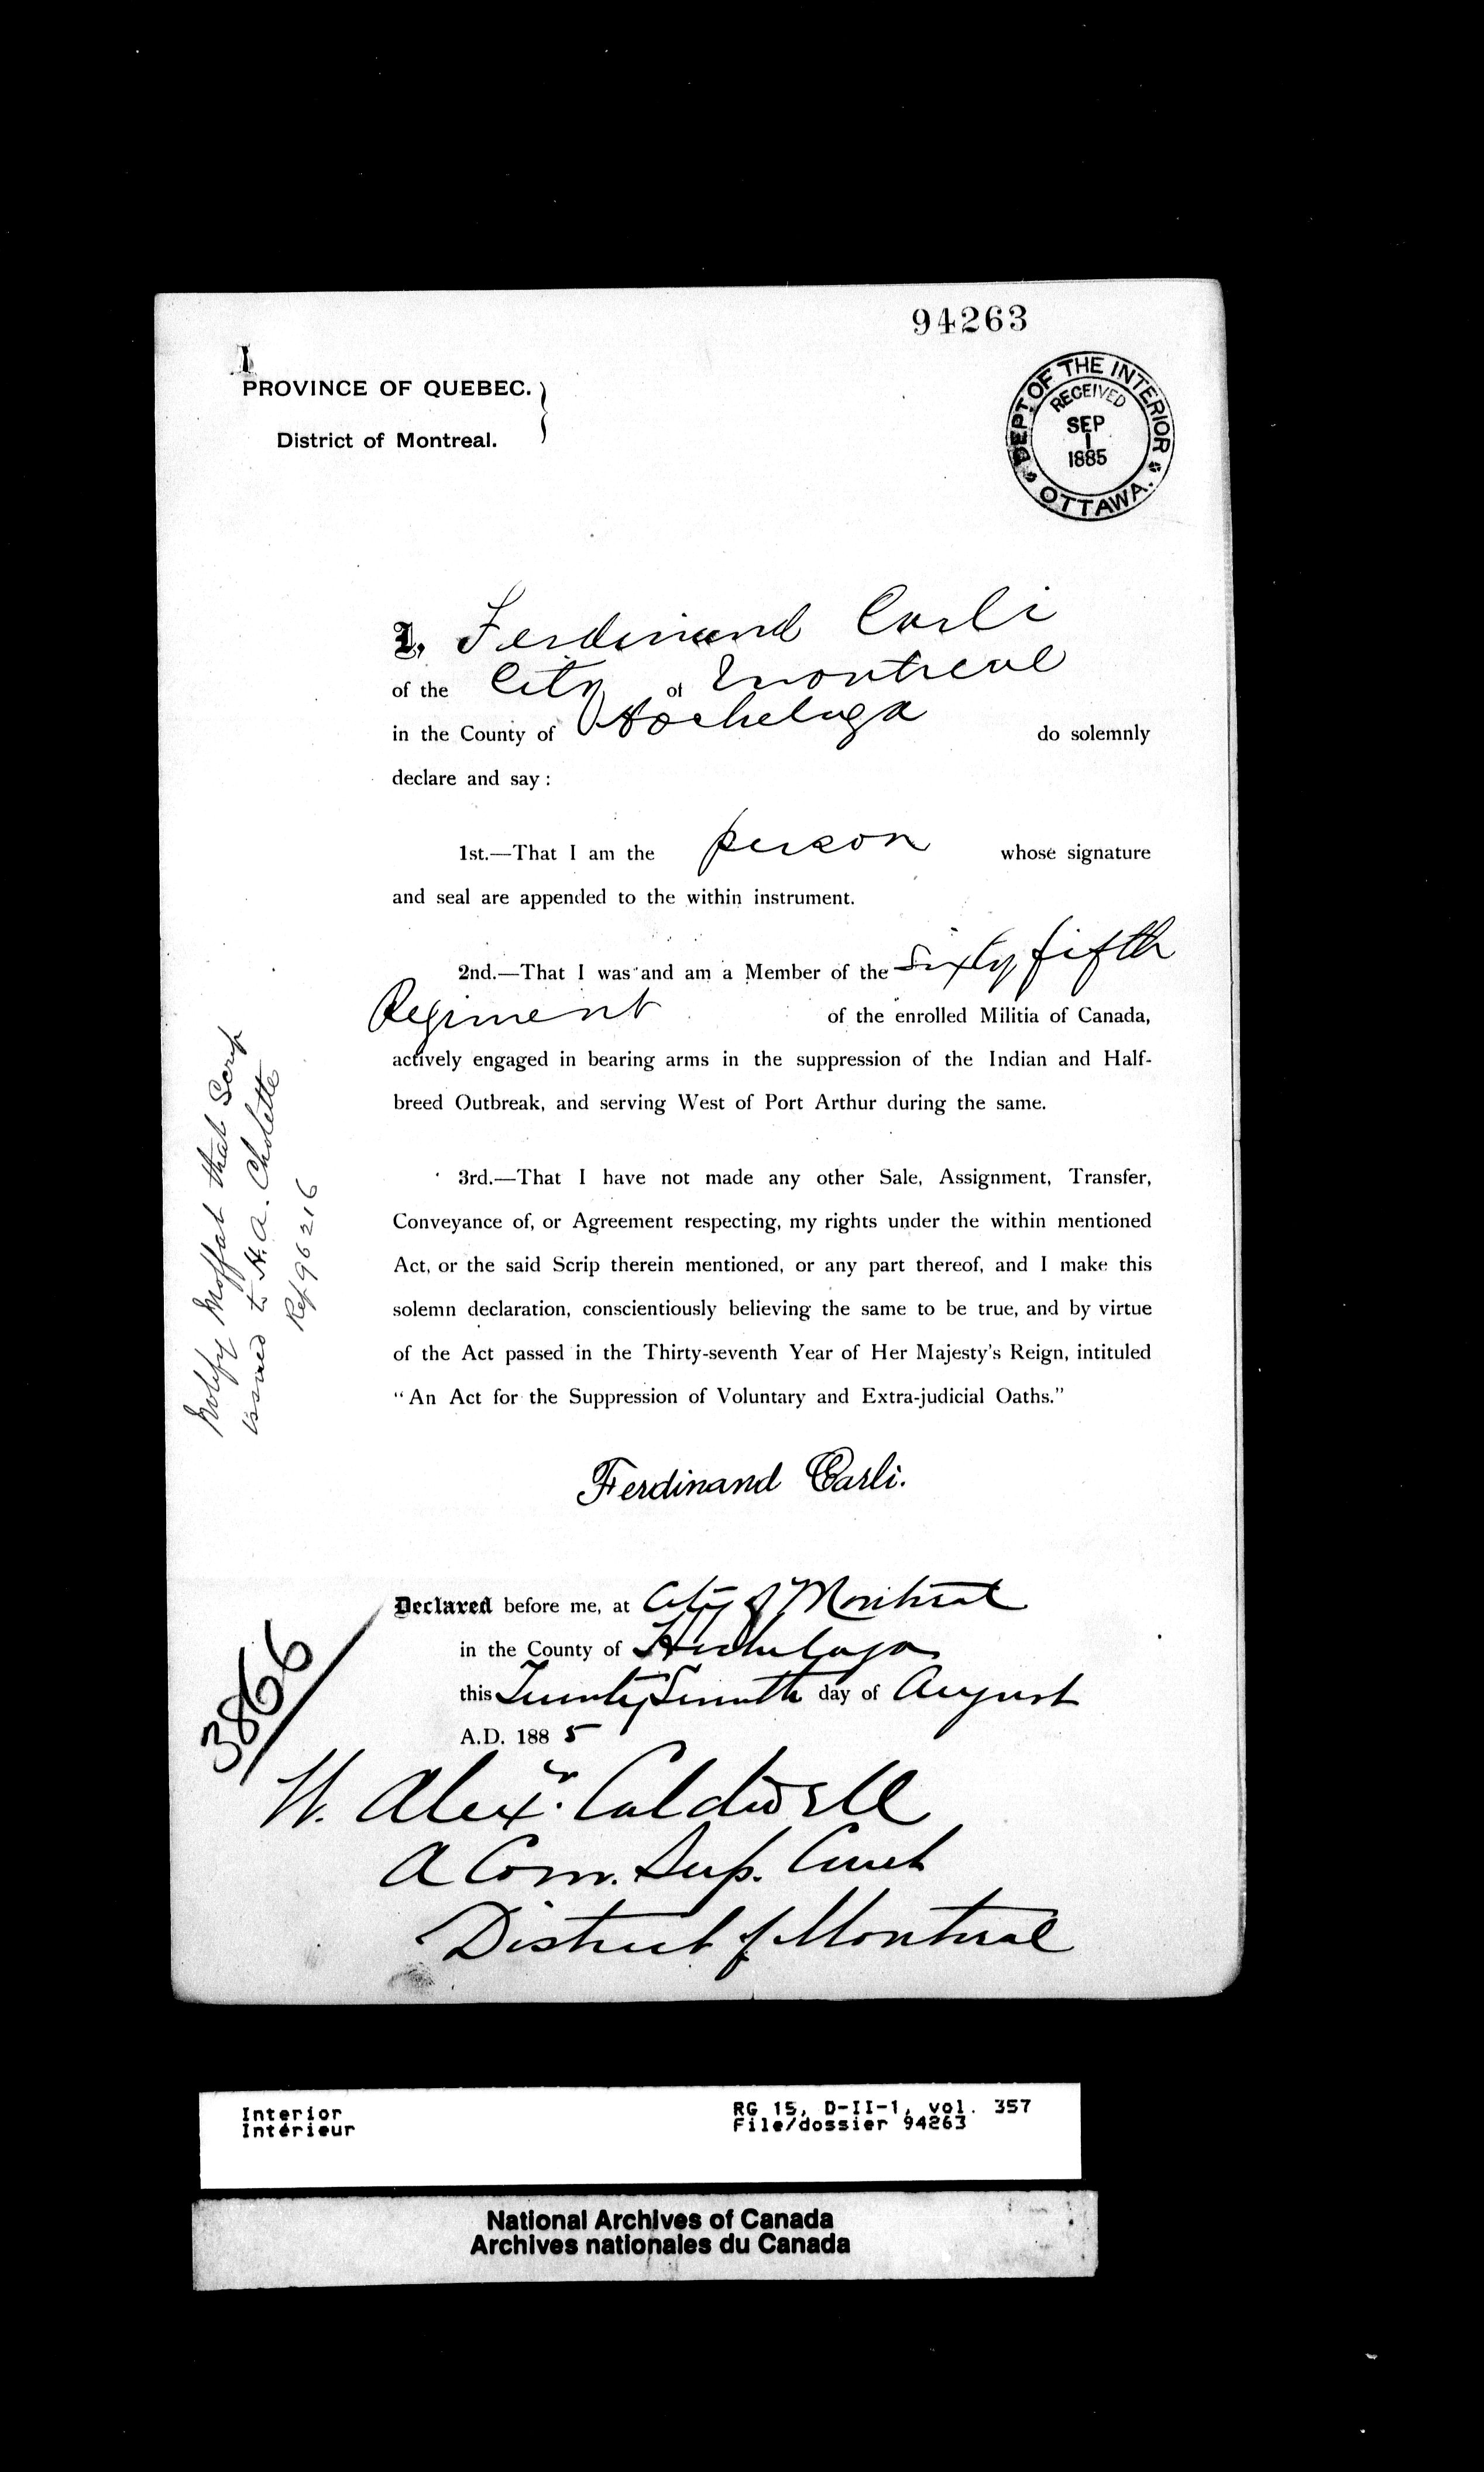 94263
PROVINCE OF QUEBEC.
District of Montreal.
DEPT OF THE INTERIOR
RECEIVED
SEP
1
1885
OTTAWA.
I, Ferdinand Carli
of the City of Montreal
in the County of Hochelaga do solemnly
declare and say:
1st.—That I am the person whose signature
and seal are appended to the within instrument.
2nd.—That I was and am a Member of the Sixty fifth
Regiment of the enrolled Militia of Canada,
actively engaged in bearing arms in the suppression of the Indian and Half-
breed Outbreak, and serving West of Port Arthur during the same.
3rd.—That I have not made any other Sale, Assignment, Transfer,
Conveyance of, or Agreement respecting, my rights under the within mentioned
Act, or the said Scrip therein mentioned, or any part thereof, and I make this
solemn declaration, conscientiously believing the same to be true, and by virtue
of the Act passed in the Thirty-seventh Year of Her Majesty's Reign, intituled
"An Act for the Suppression of Voluntary and Extra-judicial Oaths."
Notify Moffat that Scrip
issued to H. A. Cholette
Ref 96216
Ferdinand Carli.
Declared before me, at City of Montreal
in the County of Hochelaga
this Twenty Seventh day of August
A.D. 1885
3866
W. Alexr. Caldwell
A Com. Sup. Court
District of Montreal
Interior
Intérieur
RG 15, D-II-1, vol. 357
File/dossier 94263
National Archives of Canada
Archives nationales du Canada